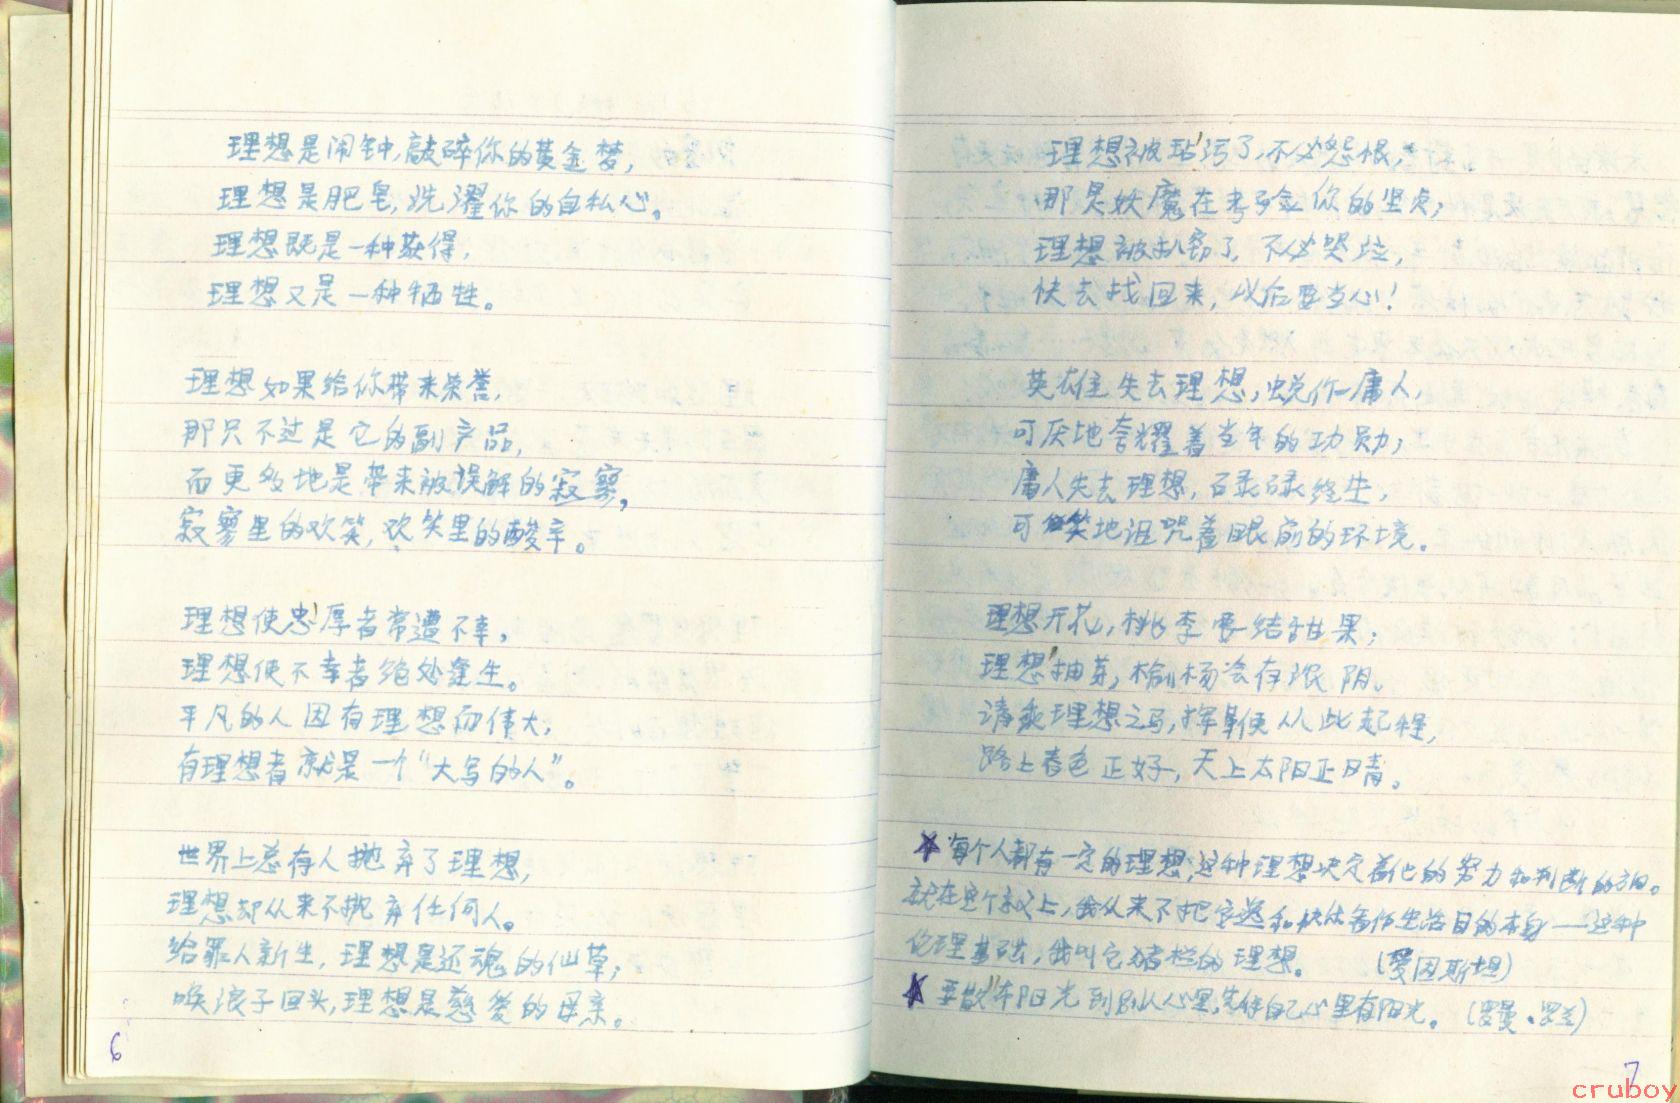 理想是闹钟,敲碎你的黄金梦,
理想是肥皂,洗濯你的自私心。
理想既是一种获得,
理想又是一种牺牲。
理想如果给你带来荣誉,
那只不过是它的副产品,
而更多地是带来被误解的寂寥,
寂寥里的欢笑,欢笑里的酸辛。
理想使忠厚者常遭不幸,
理想使不幸者绝处逢生。
平凡的人因有理想而伟大;
有理想者就是一个“大写的人”。
世界上总有人抛弃了理想,
理想却从来不抛弃任何人。
给罪人新生,理想是还魂的仙草;
唤浪子回头,理想是慈爱的母亲。
6
理想被玷污了,不必怨恨,
那是妖魔在考验你的坚贞;
理想被扒窃了,不必哭泣,
快去找回来,以后要当心!
英雄失去理想,蜕作庸人,
可厌地夸耀着当年的功勋;
庸人失去理想,碌碌终生,
可笑地诅咒着眼前的环境。
理想开花,桃李要结甜果;
理想抽芽,榆杨会有浓阴。
请乘理想之马,挥鞭从此起程,
路上春色正好,天上太阳正晴。
★每个人都有一定的理想,这种理想决定着他的努力和判断的方向。
就在这个意义上,我从来不把安逸和快乐看作生活目的本身——这种
伦理基础,我叫它猪栏的理想。 (爱因斯坦)
★要散布阳光到别人心里,先得自己心里有阳光。(罗曼·罗兰)
7
cruboy